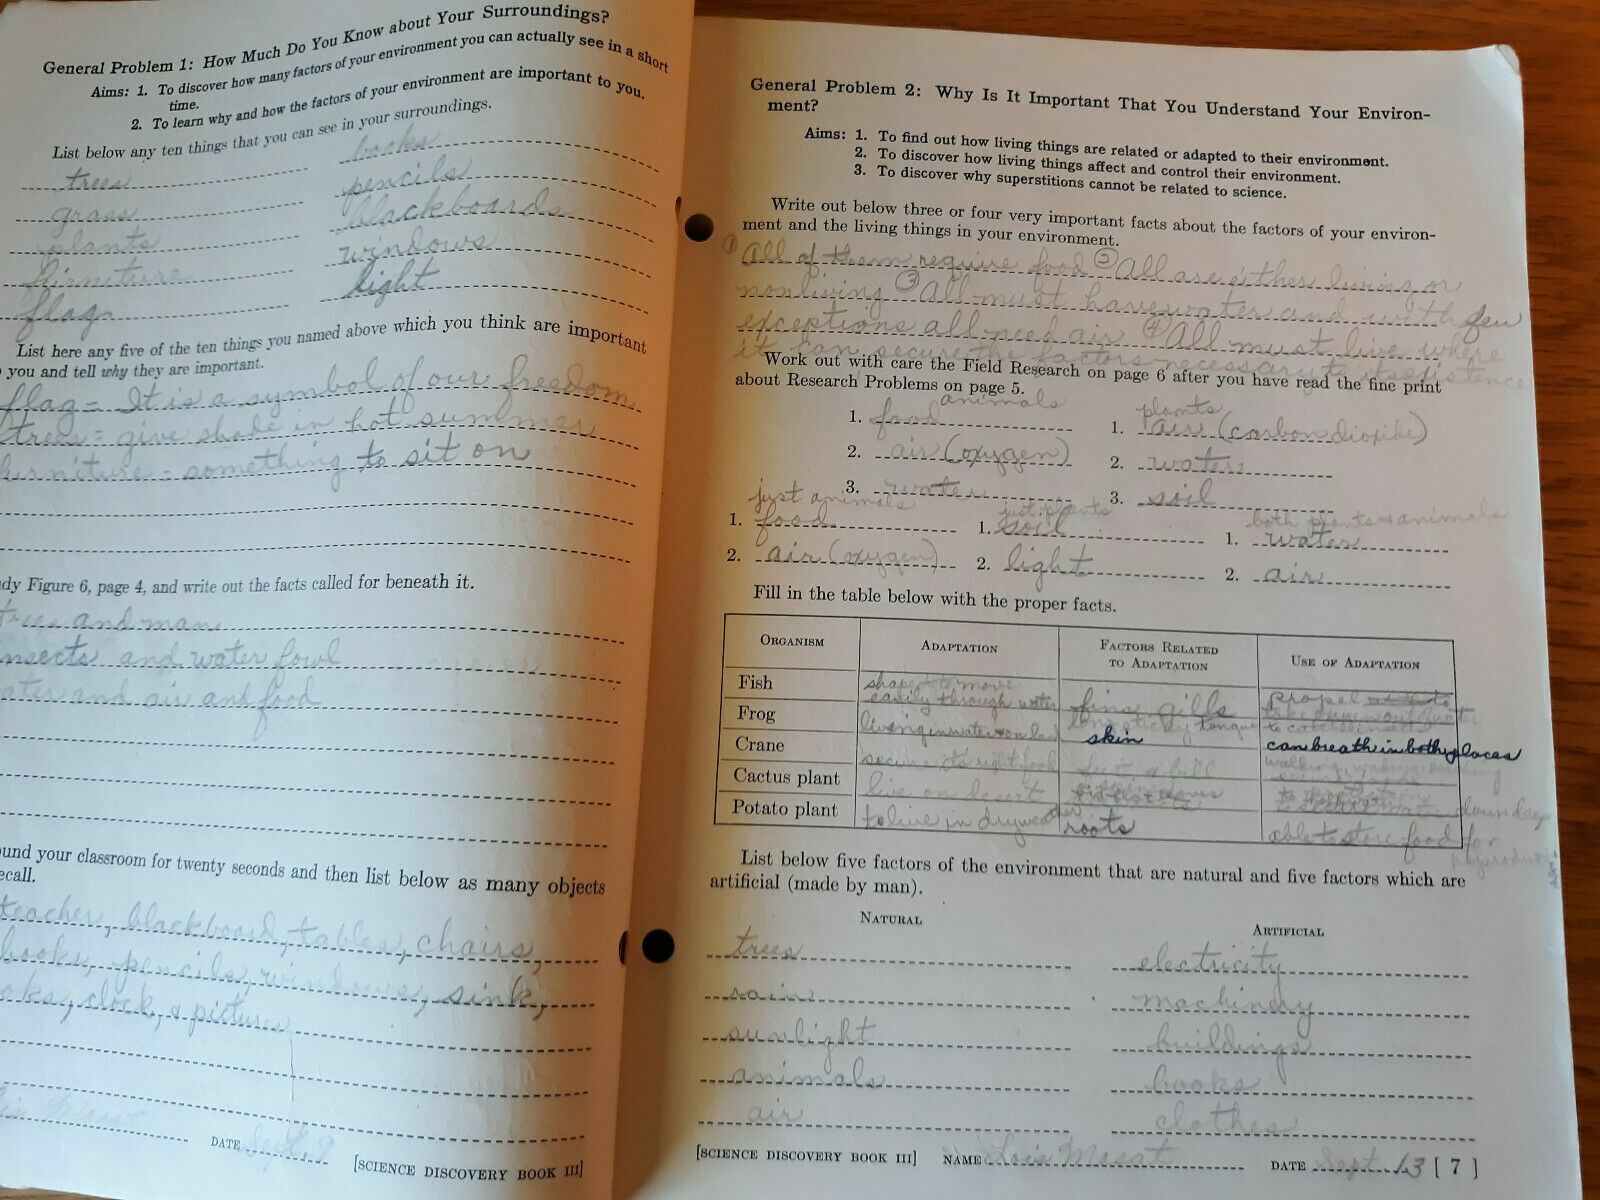 General Problem 1: How Much Do You Know about Your Surroundings?
Aims: 1. To discover how many factors of your environment you can actually see in a short
time.
2. To learn why and how the factors of your environment are important to you.
List below any ten things that you can see in your surroundings.
trees
grass
plants
furniture
flag
books
pencils
blackboards
windows
light
List here any five of the ten things you named above which you think are important
you and tell why they are important.
flag = It is a symbol of our freedom
trees = give shade in hot summer
furniture = something to sit on
dy Figure 6, page 4, and write out the facts called for beneath it.
tree and man
insects and water fowl
water and air and food
und your classroom for twenty seconds and then list below as many objects
ecall.
teacher, blackboard, tables, chairs,
books, pencils, windows, sink,
clock, & pictures
DATE Sept. 9
[SCIENCE DISCOVERY BOOK III]
General Problem 2: Why Is It Important That You Understand Your Environ-
ment?
Aims: 1. To find out how living things are related or adapted to their environment.
2. To discover how living things affect and control their environment.
3. To discover why superstitions cannot be related to science.
Write out below three or four very important facts about the factors of your environ-
ment and the living things in your environment.
① All of them require food ② All are either living or
nonliving ③ All must have water and with few
exceptions all need air ④ All must live where
it can secure factors necessary to its existence
Work out with care the Field Research on page 6 after you have read the fine print
about Research Problems on page 5.
animals
1. food
2. air (oxygen)
3. water
plants
1. air (carbon dioxide)
2. water
3. soil
just animals
1. food
2. air (oxygen)
just plants
1. soil
2. light
both plants & animals
1. water
2. air
Fill in the table below with the proper facts.
ORGANISM ADAPTATION FACTORS RELATED TO ADAPTATION USE OF ADAPTATION
Fish shaped to move easily through water fins gills propel
Frog living in water or land long sticky tongue
skin can breath in both places
Crane secure its right food feet & bill
Cactus plant live on desert
Potato plant to live in dry weather roots able to store food for
List below five factors of the environment that are natural and five factors which are
artificial (made by man).
NATURAL
trees
rain
sunlight
animals
air
ARTIFICIAL
electricity
machinery
buildings
books
clothes
[SCIENCE DISCOVERY BOOK III] NAME Lois DATE Sept 13 [ 7 ]